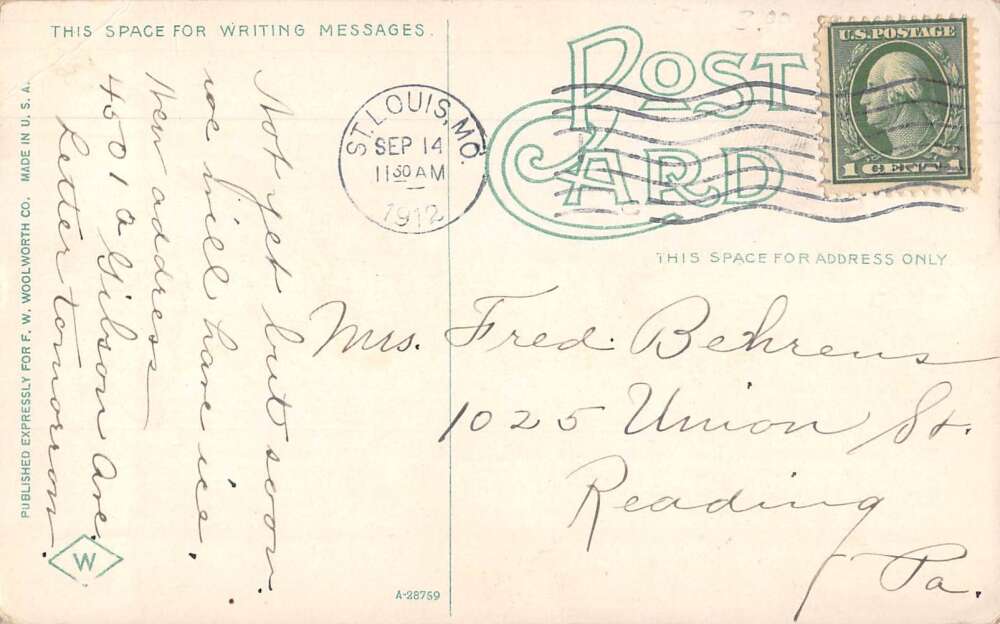 THIS SPACE FOR WRITING MESSAGES.
POST CARD
U.S. POSTAGE
1 CENT 1
ST. LOUIS, MO.
SEP 14
11 30 AM
1912
THIS SPACE FOR ADDRESS ONLY
Not yet but soon
we will have ice.
New address
4501 a Gibson Ave.
Letter tomorrow.
Mrs. Fred. Behrens
1025 Union St.
Reading
Pa.
PUBLISHED EXPRESSLY FOR F. W. WOOLWORTH CO. MADE IN U. S. A.
W
A-28759